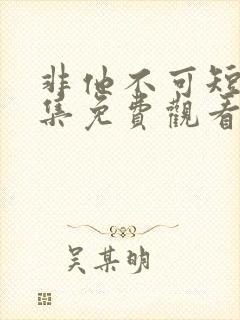 非他不可短
集免費觀看
吴某明